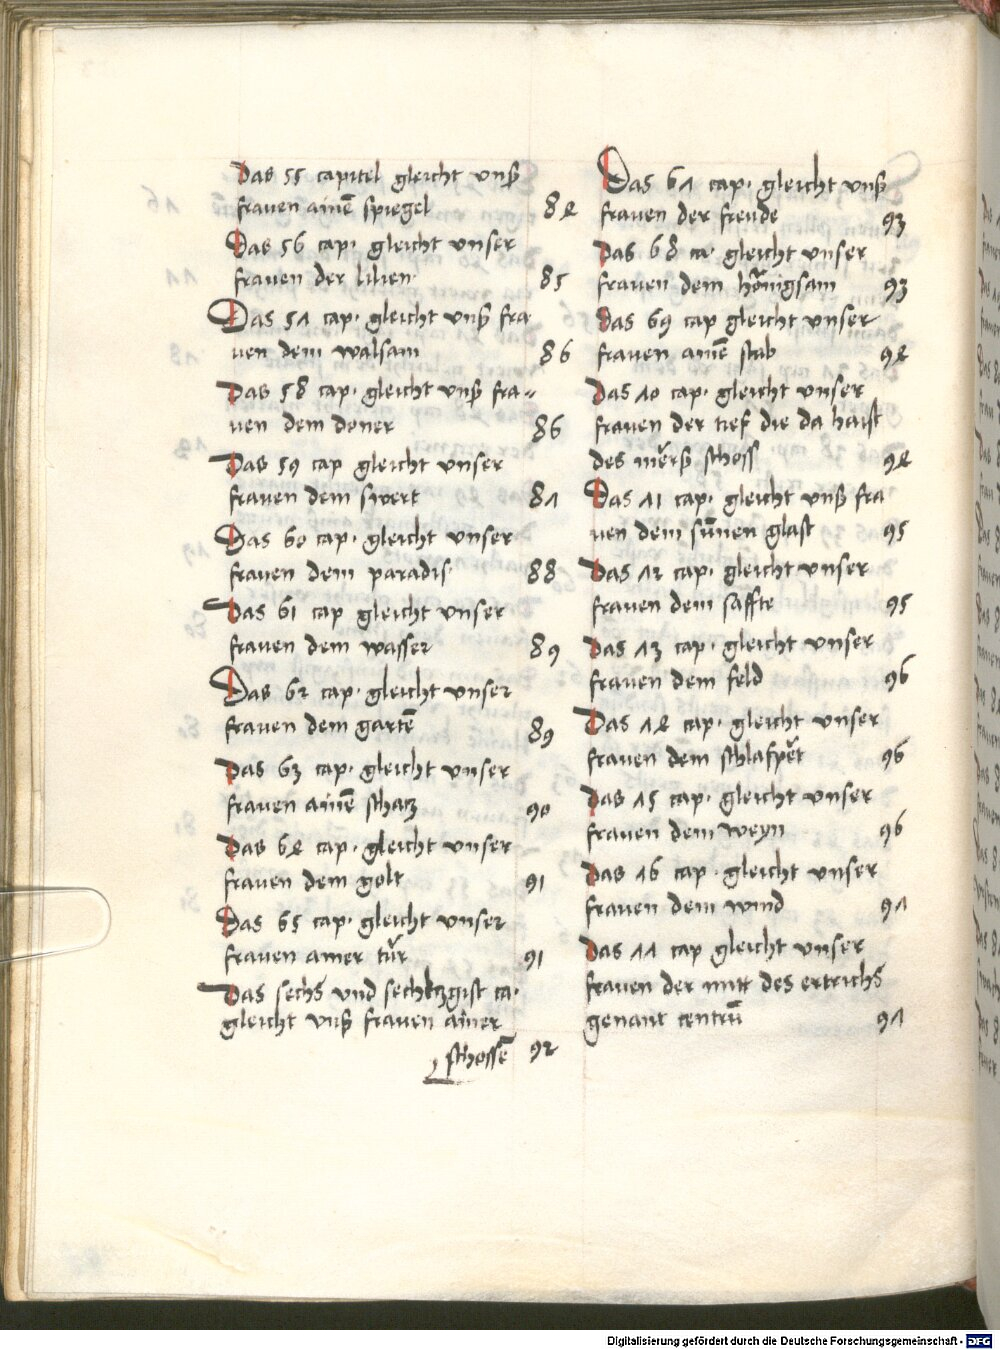 Das 55 capitel gleicht vnsß
frauen ainē spiegel 84
Das 56 cap. gleicht vnser
frauen der lilien. 85
Das 57 cap. gleicht vnsß fra
uen dem walsam 86
Das 58 cap. gleicht vnsß fra-
uen dem doner 86
Das 59 cap gleicht vnser
frauen dem swert 87
Das 60 cap. gleicht vnser
frauen dem paradis. 88
Das 61 cap gleicht vnser
frauen dem wasser 89
Das 62 cap. gleicht vnser
frauen dem gartē 89
Das 63 cap. gleicht vnser
frauen ainē schatz 90
Das 64 cap. gleicht vnser
frauen dem golt 91
Das 65 cap. gleicht vnser
frauen ainer tür 91
Das sechs vnd sechtzgist ca.
gleicht vnsß frauen ainer
schossē 92
Das 67 cap. gleicht vnsß
frauen der freude 93
Das 68 ca. gleicht vnser
frauen dem hönigsam 93
Das 69 cap gleicht vnser
frauen ainē stab 94
Das 70 cap. gleicht vnser
frauen der tief die da haist
des mersß schoss 94
Das 71 cap. gleicht vnsß fra
uen dem sunnen glast 95
Das 72 cap. gleicht vnser
frauen dem saffte 95
Das 73 cap. gleicht vnser
frauen dem feld 96
Das 74 cap. gleicht vnser
frauen dem schlafpet 96
Das 75 cap. gleicht vnser
frauen dem weyn 96
Das 76 cap. gleicht vnser
frauen dem wind 97
Das 77 cap gleicht vnser
frauen der mitt des ertrichs
genant centrū 97
Digitalisierung gefördert durch die Deutsche Forschungsgemeinschaft - DFG